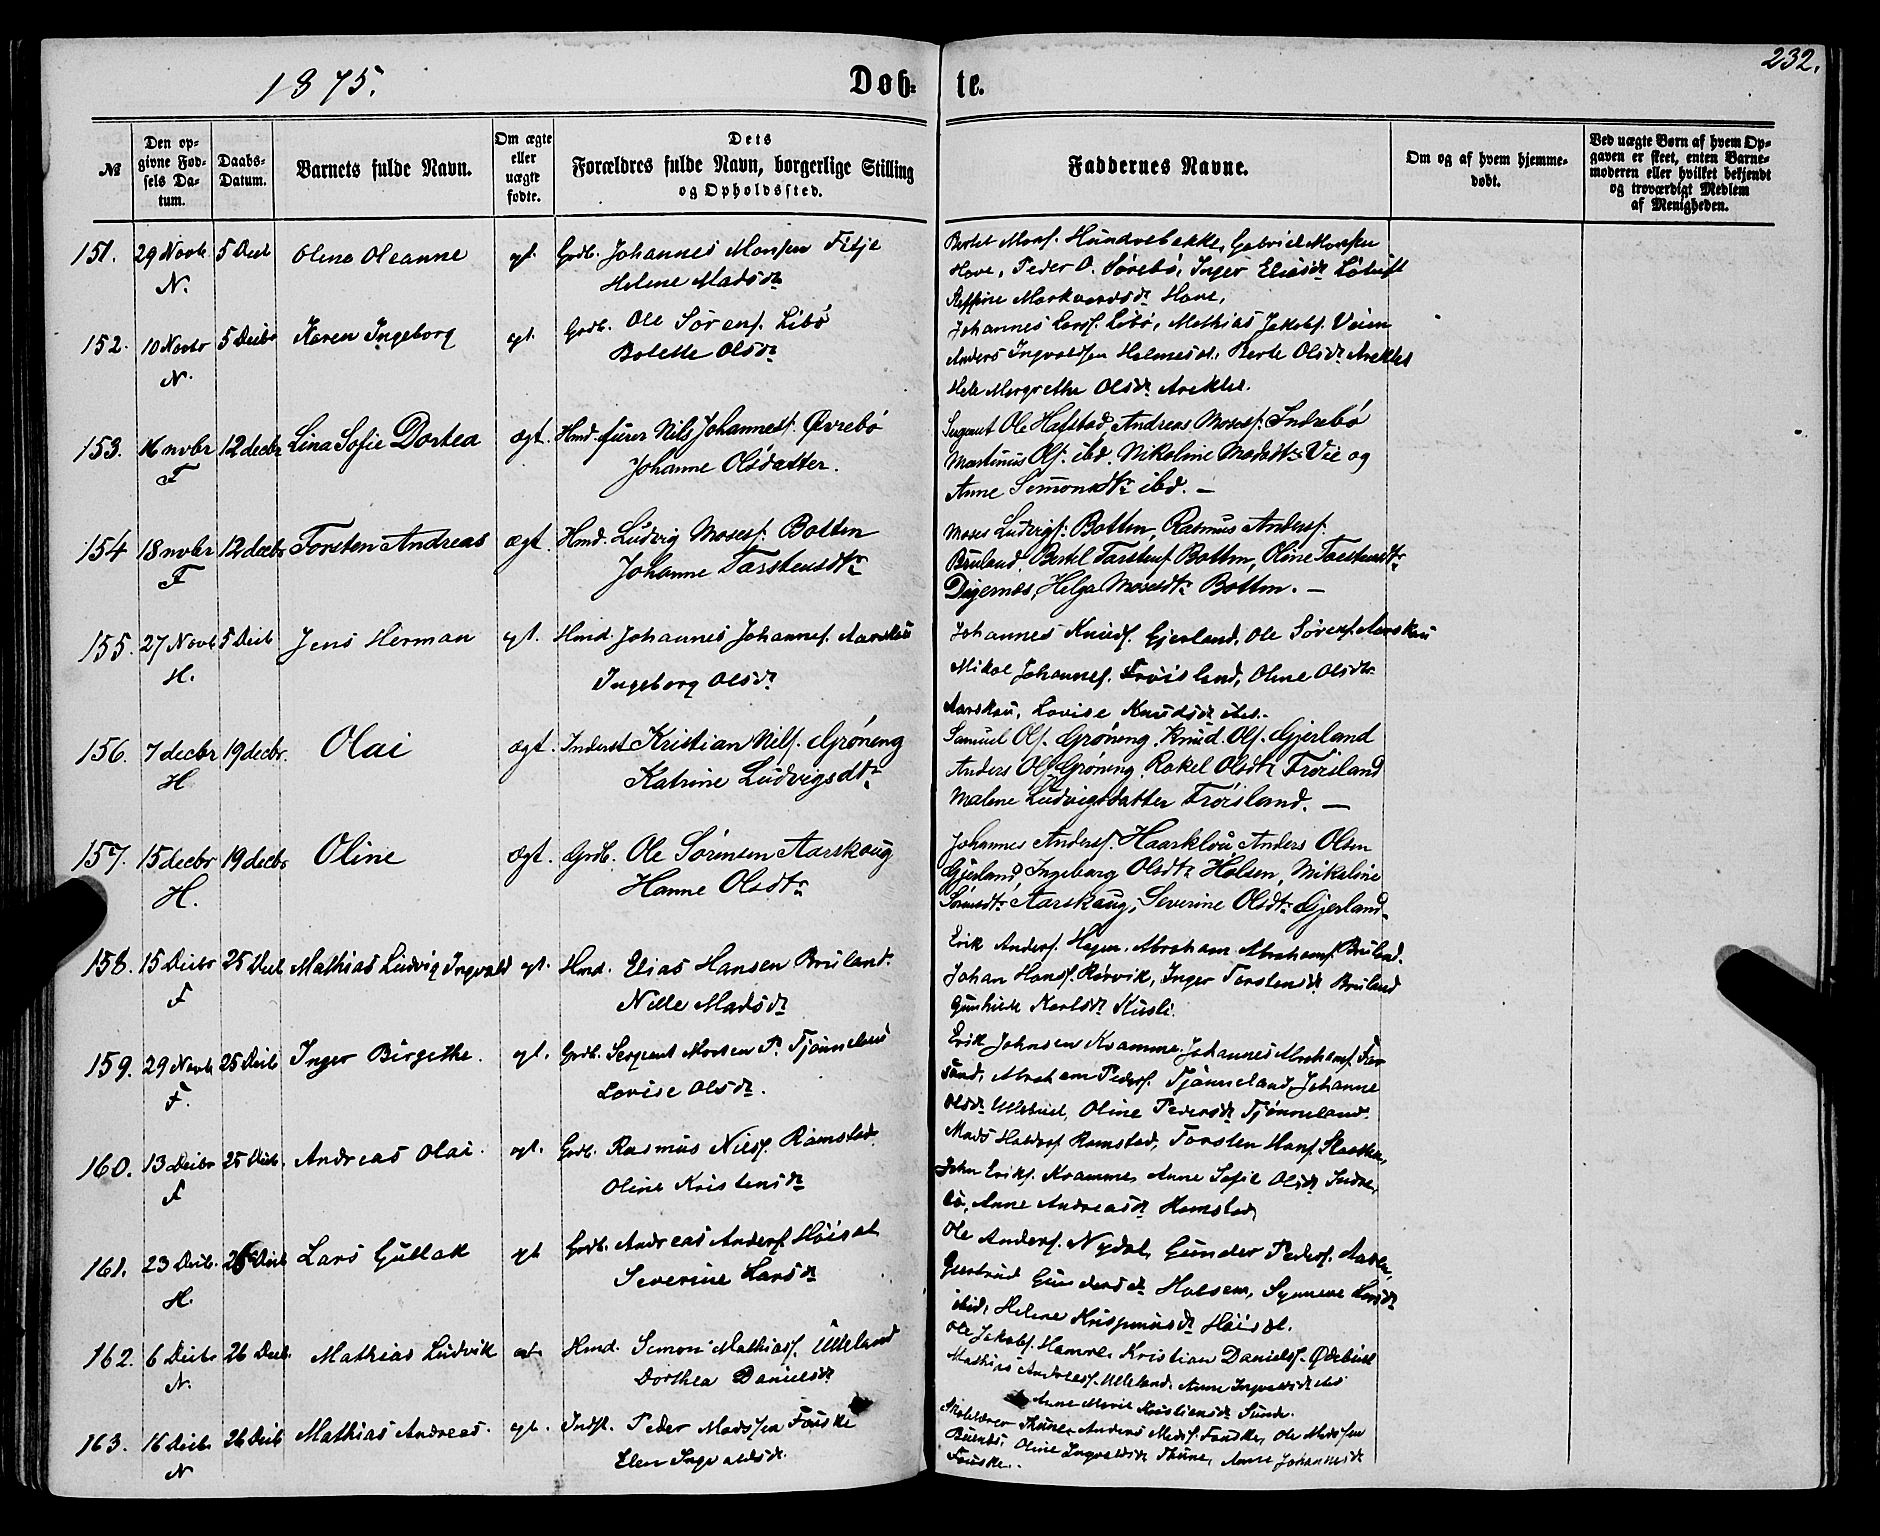 232.
1875.
Døb-te.
№
Den op-
givne Fød-
sels Da-
tum.
Daabs-
Datum.
Barnets fulde Navn.
Om ægte
eller
uægte
fødte.
Dets
Forældres fulde Navn, borgerlige Stilling
og Opholdssted.
Faddernes Navne.
Om og af hvem hjemme-
døbt.
Ved uægte Børn af hvem Op-
gaven er skeet, enten Barne-
moderen eller hvilket bekjendt
og troværdigt Medlem
af Menigheden.
151. 29 Novb 5 Decb Olena Oleanne egt. Grdb. Johannes Monsen Fitje
N. Helene Madsdr
Bertel Monss. Hundvebakke, Gabriel Monsen
Hove, Peder O. Sørebø, Inger Eliasdr
Markvardsdr Hove,
152. 10 Novbr 5 Decbr Karen Ingeborg egt. Grdb. Ole Sørens. Libø
N. Bolette Olsdr
Johannes Larss. Libø, Mathias Jakobs. Veien
Anders Ingvaldsen Berte Olsdr Areklet
Margrethe Olsdr Areklet.
153. 16 novbr 12 decbr Lina Sofie Dortea ægt. Hmd. furer Nils Johanness. Øvrebø
F Johanne Olsdatter.
Sergeant Ole Hafstad, Andreas Moses. Indrebø
Martinus Ols. ibd. Nikoline Madsdtr Vie og
Anne Simonsdtr ibd. —
154 18 novbr 12 decbr Torsten Andreas ægt. Hmd. Ludvig Moses. Botten
F Johanne Tarstensdtr
Moses Ludvigs. Botten, Rasmus Anderss.
Bruland, Bertel Tarstens. Botten, Oline Tarstensdtr
Digernes, Helga Mosesdtr Botten. —
155. 27 Novb 5 Decb Jens Herman egt. Hmd. Johannes Johanness. Aarskau
H. Ingeborg Olsdr
Johannes Knuds. Gjerland, Ole Sørens. Aarskau
Mikal Johanness. Frøisland, Oline Olsdtr
Aarskau, Lovise Knudsdr ibd.
156. 7 decbr 19 decbr. Olai ægt. Inderst Kristian Nils. Grøneng
H Katrine Ludvigsdtr
Samuel Ols. Grøneng, Knud Ols. Gjerland
Anders Ols. Grøneng, Rakel Olsdtr Frøisland
Malene Ludvigsdatter Frøisland. —
157. 15 decbr 19 decbr Oline ægt. Grdb. Ole Sørensen Aarskaug
H. Hanne Olsdtr
Johannes Anderss. Haarklau, Anders Olsen
Gjerland, Ingeborg Olsdtr Holsen, Mikaline
Sørensdtr Aarskaug, Severine Olsdtr Gjerland
158. 15 Decbr 25 Decb Mathias Ludvig Ingvald egt. Hmd. Elias Hansen Bruland.
F Nille Madsdr
Erik Anderss. Hagen, Abraham Abrahams. Bruland.
Johan Hans. Rørvik, Inger Torstensdr Bruland
Gunhilde Karlsdr Kusli.
159. 29 Novb 25 Decb Inger Birgethe. egt. Grdb. Sergeant Morten P. Tjønneland
F. Lovise Olsdr.
Erik Johnsen Kvamme, Johannes Abrahams. For
sund, Abraham Peders. Tjønneland, Johanne
Olsdr Ullebust, Oline Pedersdr Tjønneland.
160. 13 Decbr 25 Decb. Andreas Olai. egt. Grdb. Rasmus Nilss. Ramstad
F Oline Kristensdr
Mads Halvors. Ramstad, Torsten Hans.
John Eriks. Kvamme, Anne Sofie Olsdr Indre-
bø, Anne Andreasdr Ramstad
161. 23 Decb. 26 Decb Lars Gullak egt Grdb. Andreas Anders. Høisæt
H. Severine Larsdr
Ole Anders. Nydal, Gunder Peders. Aasen,
Gjertrud Gundersdr Holsen, Synneve Larsdr
ibid, Helene Høisæt.
162. 6 Decbr 26 Decb. Mathias Ludvik egt. Hmd. Simon Mathiass. Ulleland
N. Dorthea Danielsdr
Ole Jakobs. Hamre, Kristian Daniels. Ødebust
Mathias Andreass. Ulleland, Anne Ingvaldsdr ibd
Anne Marie Kristiansdr Sunde.
163. 16 Decb. 26 Decb Mathias Andreas. egt. Indst. Peder Madssen Fauske
N Elen Ingvaldsdr.
Thune, Anders Mads. Fauske, Ole Madssen
Oline Ingvaldsdr Thune, Anne Johannesdr
Fauske.